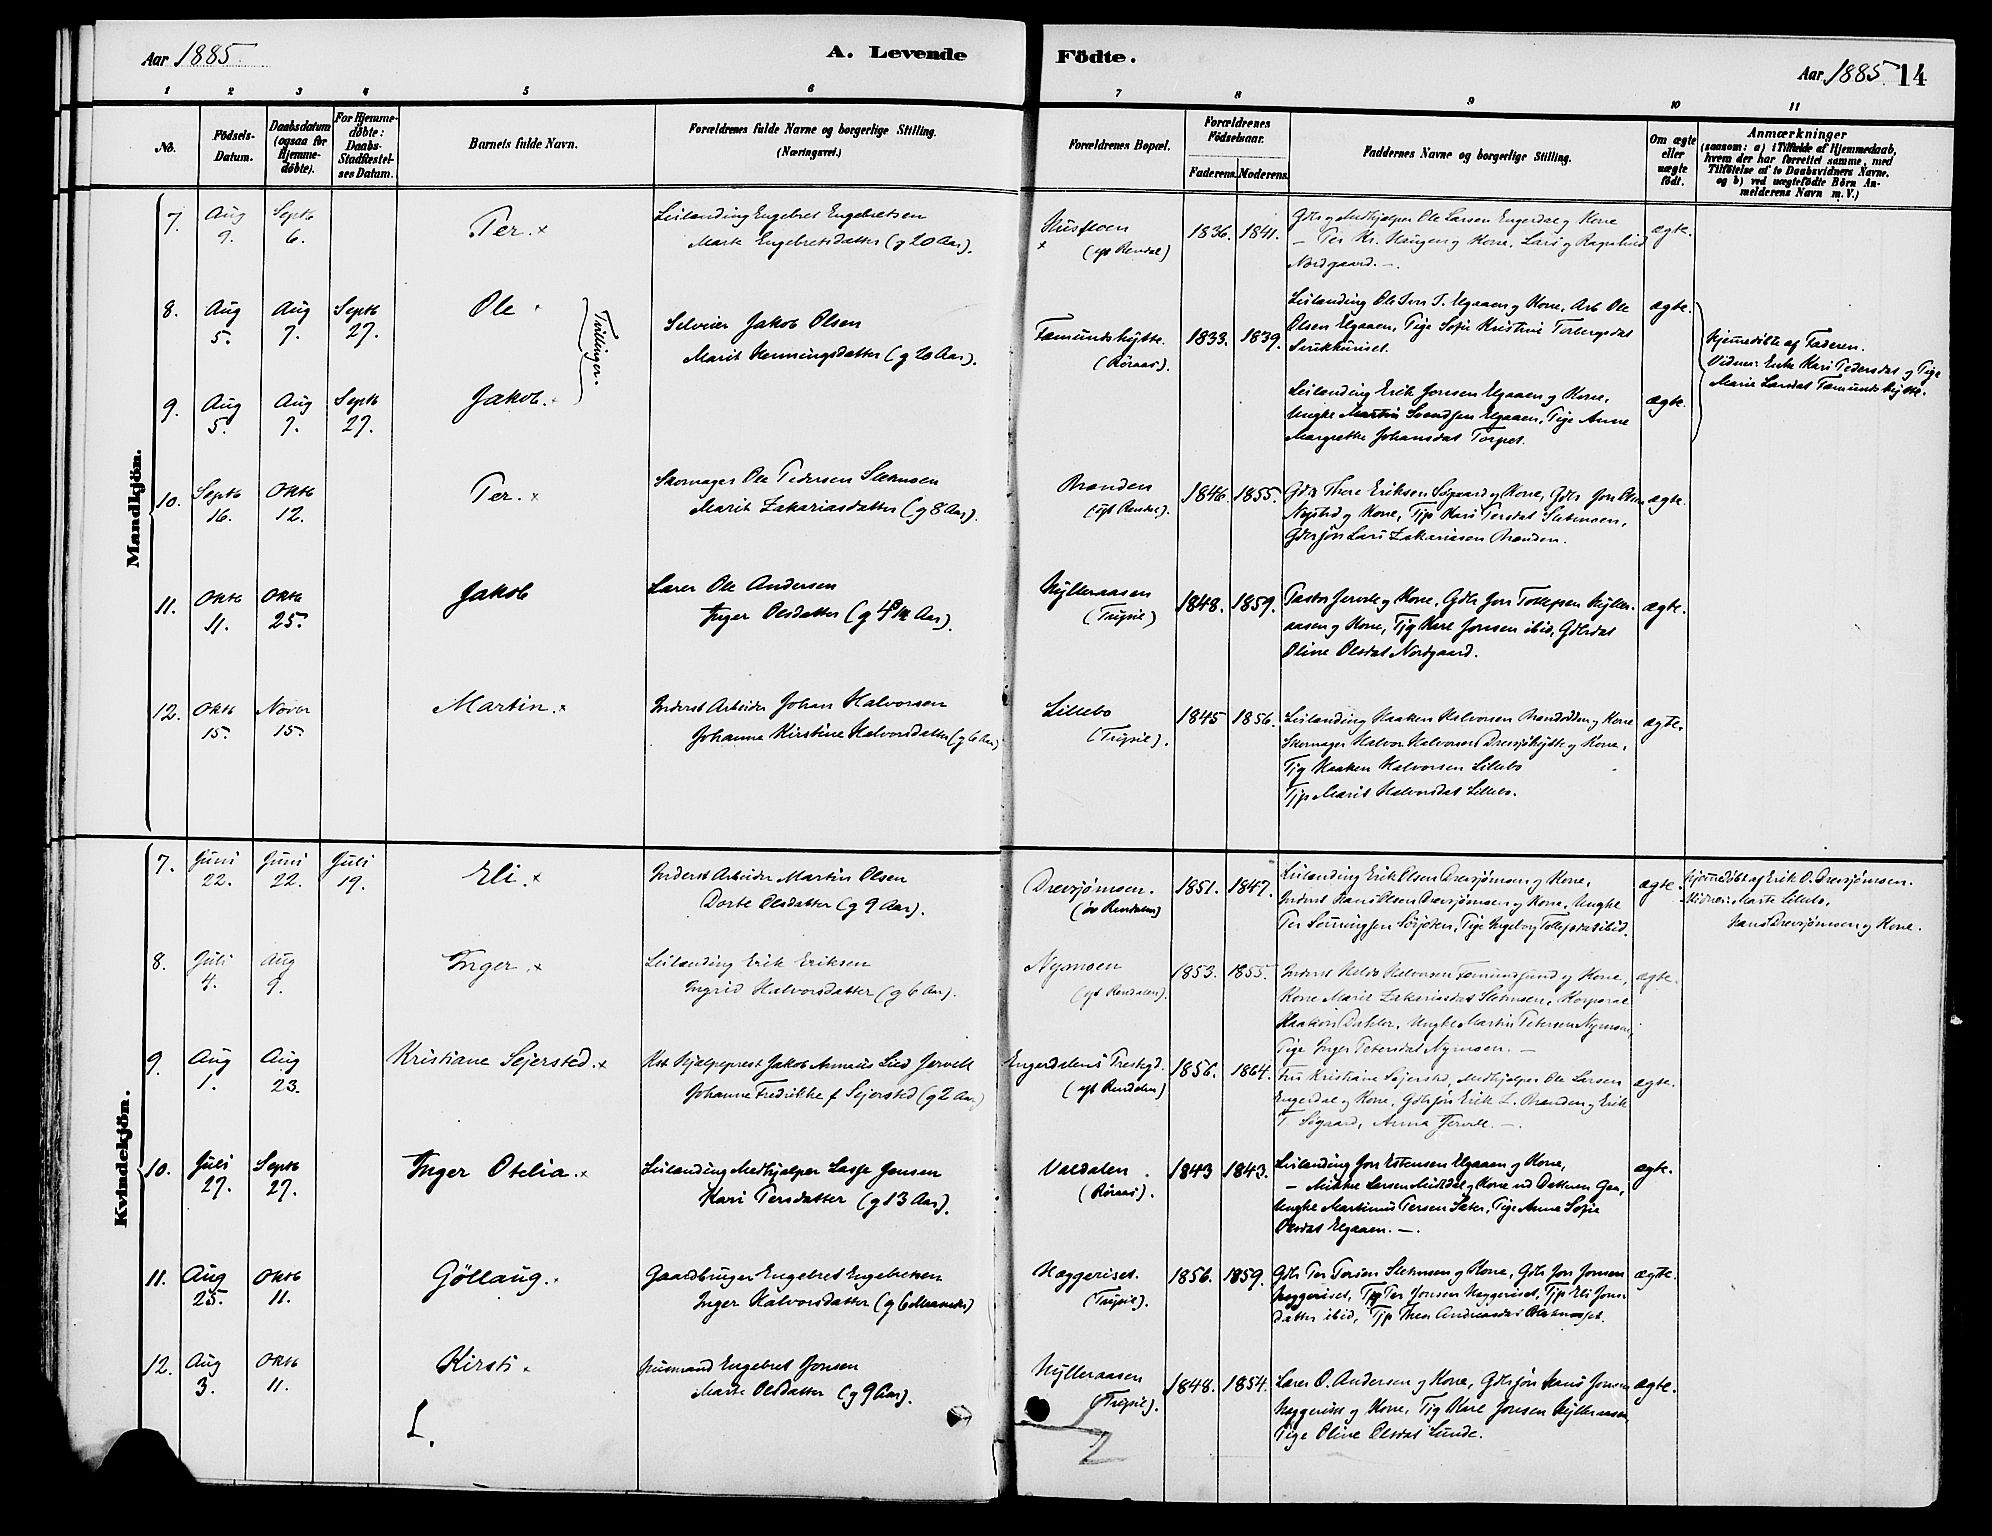 Aar 1885.
A. Levende
Födte.
Aar 1885. 14
1 2 3 4 5 6 7 8 9 10 11
No.
Födsels-
Datum.
Daabsdatum
(ogsaa for
Hjemme-
döbte).
For Hjemme-
döbte:
Daabs-
Stadfæstel-
ses Datum.
Barnets fulde Navn.
Forældrenes fulde Navne og borgerlige Stilling.
(Næringsvei.)
Forældrenes Bopæl.
Forældrenes
Födselsaar.
Faderens. Moderens.
Faddernes Navne og borgerlige Stilling.
Om ægte
eller
uægte
födt.
Anmærkninger
(saasom: a) i Tilfælde af Hjemmedaab,
hvem der har forrettet samme, med
Tilföielse af to Daabsvidners Navne.
og b) ved uægtefödte Börn An-
melderens Navn m. V.)
Mandkjön.
7. Aug 9. Septb 6. Per.
Leilænding Engebret Engebretsen
Marte Engebretsdatter (g 20 Aar).
Husfloen
(øv Rendal)
1836. 1841.
Gdbr og Medhjælper Ole Larsen Engerdal og Kone
— Per Kr. Haugen og Kone, Lars og Ragnhild
Nordgaard. —.
ægte.
8. Aug 5. Aug 7. Septb 27. Ole
Tvillinger.
Selveier Jakob Olsen
Marit Henningsdatter (g 20 Aar).
Fæmundshytte.
(Röraas).
1833. 1839.
Leilænding Ole Iver T. Elgaaen og Kone, Arb Ole
Olsen Elgaaen, Pige Sofie Kristine Torbergsdat
ægte.
Hjemmedöbte af Faderen.
Vidner: Enke Kari Pedersdat og Pige
Marie Larsdat Fæmundshytte.
9. Aug 5. Aug 7. Septb 27. Jakob.
Leilænding Erik Jonsen Elgaaen og Kone,
Ungke Martin Svendsen Elgaaen, Pige Anne
Margrethe Johansdat Torpet.
ægte.
10. Septb 16. Oktb 12. Per.
Skomager Ole Pedersen Sletmoen
Marit Zakariasdatter (g 8 Aar).
Brænden
(øv Rendal).
1846. 1855.
Gdb Thore Eriksen Søgaard og Kone, Gdbr Jon Olsen
Nysted og Kone, Pige Kari Persdat Sletmoen,
Gdbrsön Lars Zakariasen Brænden.
ægte.
11. Oktb 11. Oktb 25. Jakob
Lærer Ole Andersen
Inger Olsdatter (g 4 1/2 Aar).
Hylleraasen
(Trysil)
1848. 1859.
Pastor Jervell og Kone, Gdbr Jon Tollefsen Hylle-
raasen og Kone, Tjg Karl Jonsen ibid, Gdbrdat
Oline Olsdat Nordgaard.
ægte.
12. Oktb 15. Novbr 15. Martin.
Inderst Arbeider Johan Halvorsen
Johanne Kirstine Halvorsdatter (g 6 Aar)
Lillebo
(Trysil).
1845 1856.
Leilænding Haaken Halvorsen Brændodden og Kone
Skomager Halvor Halvorsen Drevsjöhytte og Kone,
Tjg Haaken Halvorsen Lillebo
Tjp Marit Halvorsdat Lillebo.
ægte.
Kvindekjön.
7. Juni 22. Juni 22. Juli 19. Eli.
Inderst Arbeider Martin Olsen
Dorte Olsdatter (g 9 Aar).
Drevsjömoen.
(öv Rendalen)
1851. 1847.
Leilænding Erik Olsen Drevsjömoen og Kone,
Inderst Hans Olsen Drevsjömoen og Kone, Ungke
Per Sörjoten, Pige Ingeborg Tollefsdat ibid.
ægte.
Hjemmedöbt af Erik O. Drevsjömoen.
Vidner: Marte Lillebo,
Hans Drevsjömoen og Kone.
8. Juli 4. Aug 9. Inger.
Leilænding Erik Eriksen
Ingrid Halvorsdatter (g 6 Aar).
Nymoen
(øv Rendalen).
1853. 1855.
Inderst Halvor Halvorsen Fæmundsund og Kone,
Kone Marit Zakariasdat Sletmoen, Korporal
Haakon Dahler, Ungke Martin Petersen Nymoen,
Pige Inger Petersdat Nymoen. —
ægte.
9. Aug 1. Aug 23. Kristiane Sejersted.
Kst Hjælpeprest Jakob Anneus Lied Jervell
Johanne Fredrikke f Sejersted (g 2 Aar)
Engerdalens Prestgd.
(øv Rendalen)
1856. 1864.
Fru Kristiane Sejersted, Medhjælper Ole Larsen
Engerdal og Kone, Gdbrsön Erik L. Brænden og Erik
T. Søgaard, Anna Jervell. —.
ægte.
10. Juli 27. Septb 27. Inger Otelia.
Leilænding Medhjælper Lasse Jensen
Kari Persdatter (g 13 Aar).
Valdalen
(Röraas).
1843 1843.
Leilænding Jon Estensen Elgaaen og Kone,
— Mikkel Larsen og Kone
Ungke Martinus Persen Sæter, Pige Anne Sofie
Olsdat Elgaaen. —.
ægte.
11. Aug 25. Oktb 11. Göllaug.
Gaardbruger Engebret Engebretsen
Inger Halvorsdatter (g 6 Maaneder)
Haggeriset.
(Trysil).
1856. 1859.
Gdb Per Persen Sletmoen og Kone, Gdb Jon Jonsen
Haggeriset, Tjg Per Jonsen Haggeriset, Tjp Eli Jons-
datter ibid, Tjp Thea Andreasdat
ægte.
12. Aug 3. Oktb 11. Kirsti.
Husmand Engebret Jonsen
Marte Olsdatter (g 9 Aar).
Hylleraasen
(Trysil).
1848. 1854.
Lærer O. Andersen og Kone, Gdbrsön Hans Jonsen
Haggeriset og Kone, Tjg Karl Jonsen Hylleraasen,
Pige Oline Olsdat Lunde.
ægte.